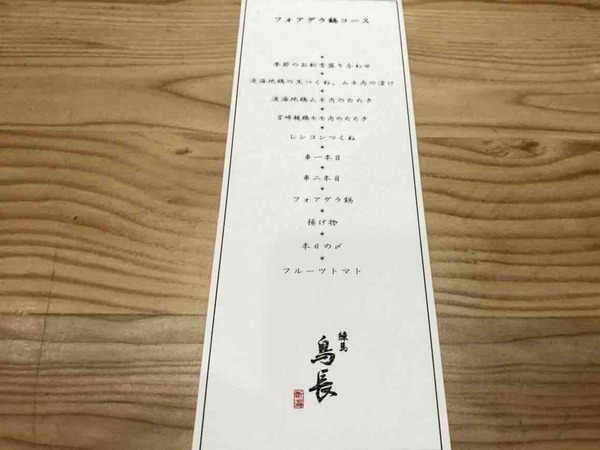 フォアグラ鍋コース
*
季節のお刺身盛り合わせ
*
淡海地鶏の生つくね、ムネ肉の漬け
*
淡海地鶏ムネ肉のたたき
*
宮崎種鶏モモ肉のたたき
*
レンコンつくね
*
串一本目
*
串二本目
*
フォアグラ鍋
*
揚げ物
*
本日の〆
*
フルーツトマト
練馬
鳥長